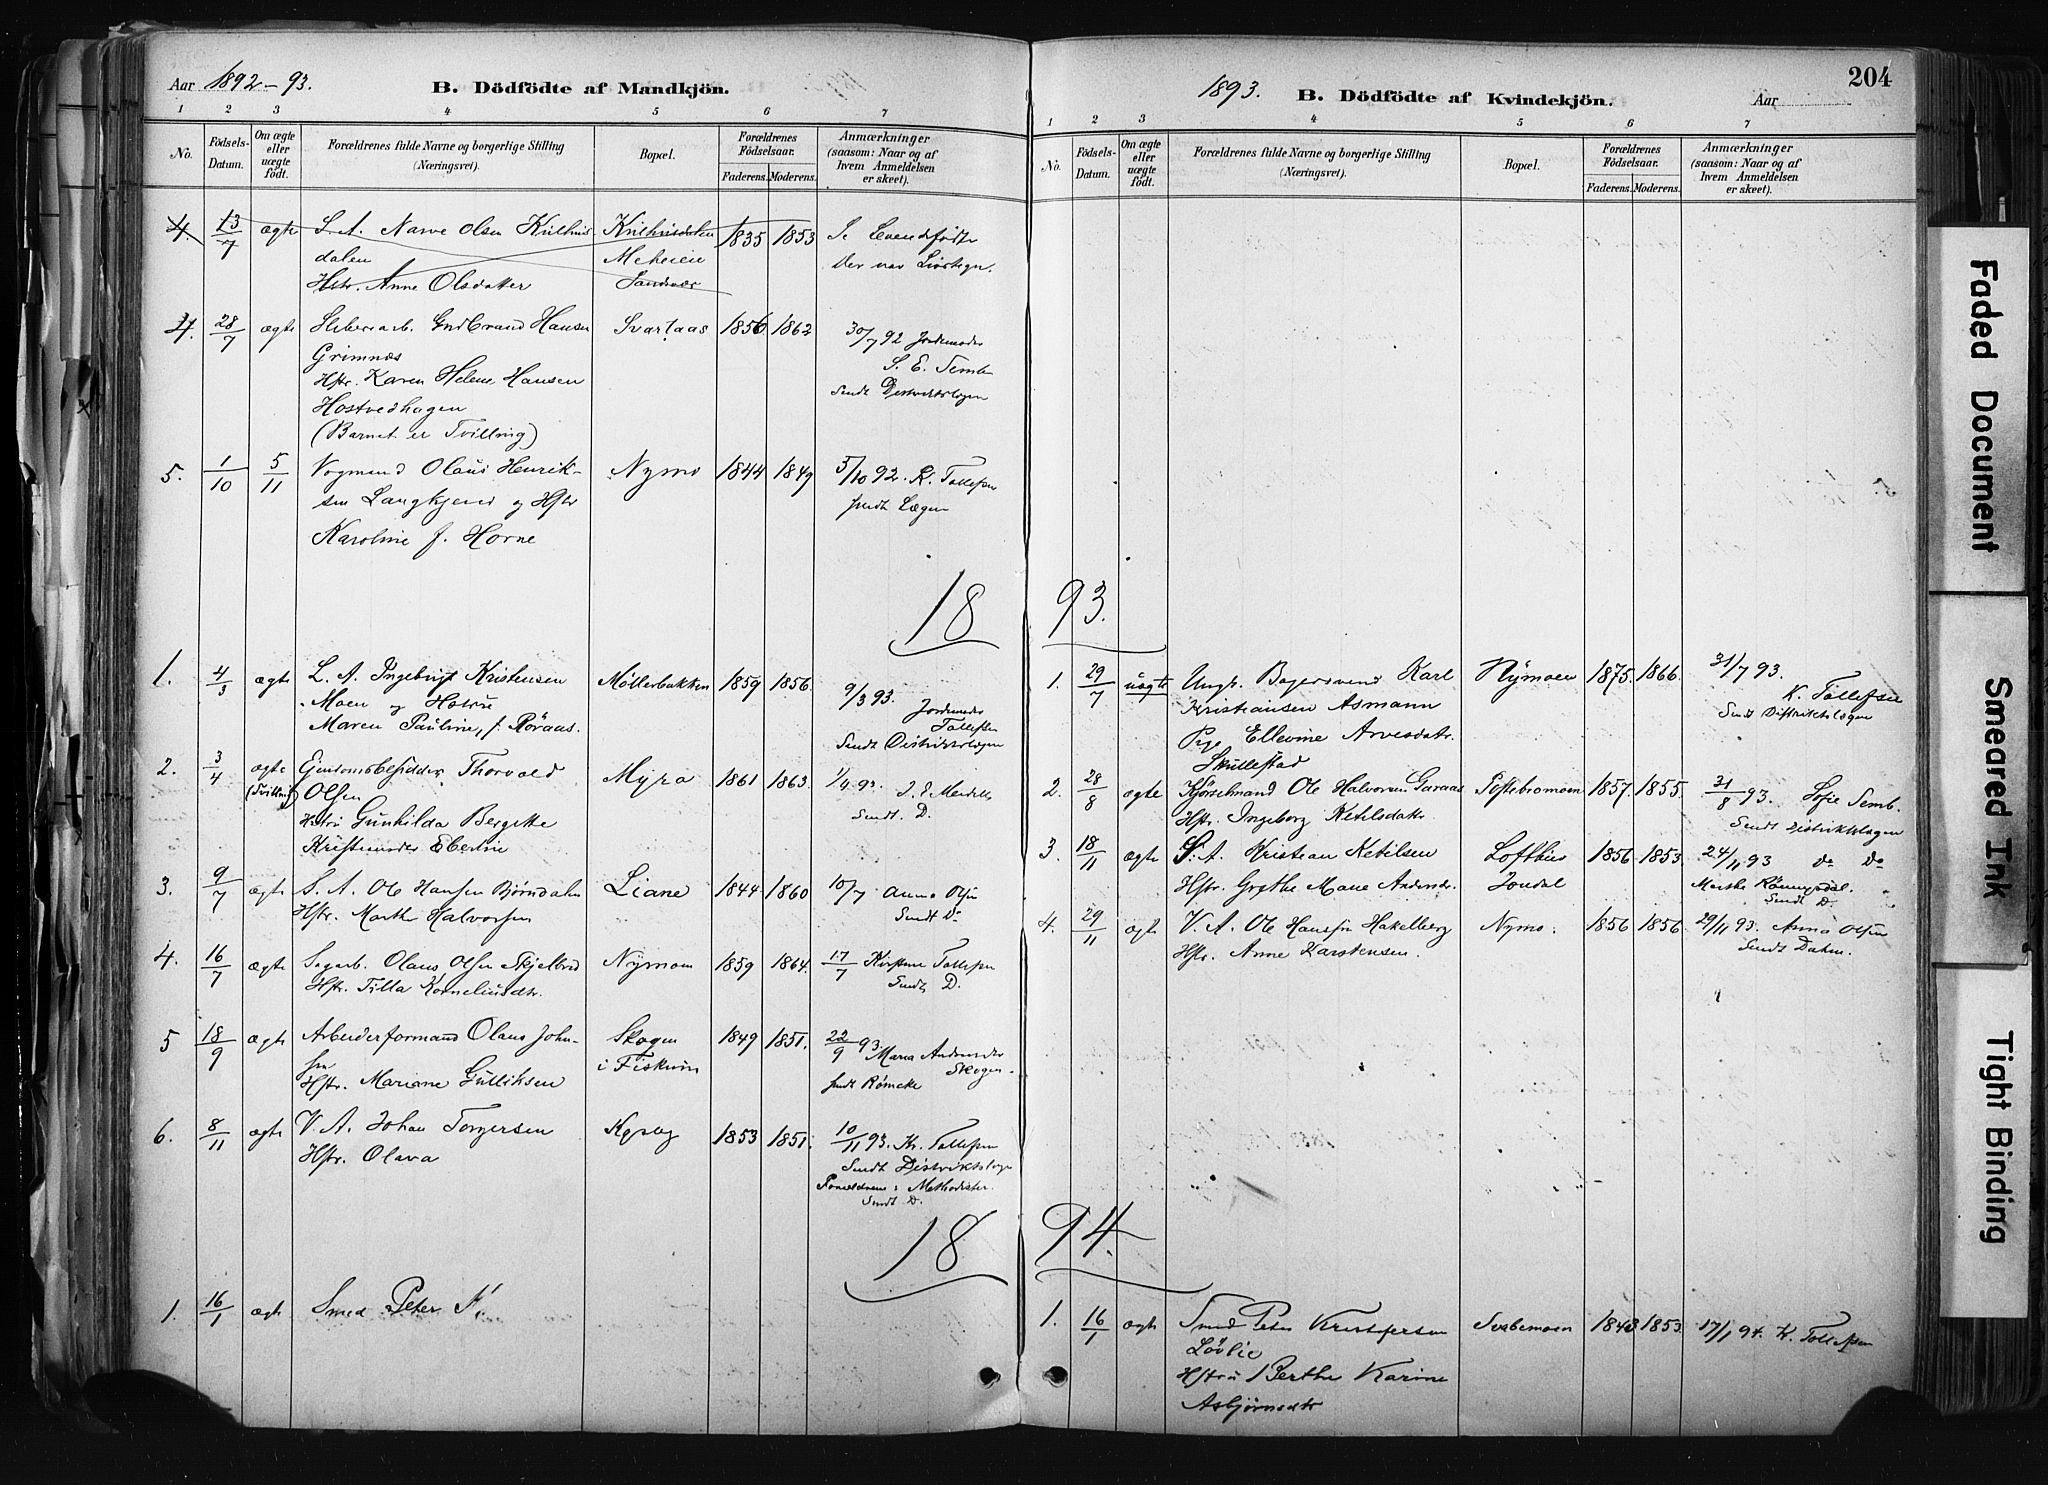 Aar 1892-93.
B. Dödfödte af Mandkjön.
1 2 3 4 5 6 7
No.
Födsels-
Datum.
Om ægte
eller
uægte
födt.
Forældrenes fulde Navne og borgerlige Stilling
(Næringsvei).
Bopæl.
Forældrenes
Födselsaar.
Faderens. Moderens.
Anmærkninger
(saasom: Naar og af
hvem Anmeldelsen
er skeet).
4. 13/7 ægte S. A. Narve Olsen 1835 1853 Se Levendefødte
dalen Meheien Der var Livstegn.
Hstr. Anne Olsdatter Sandsvær
4. 28/7 ægte Gudbrand Hansen Svartaas 1856 1862 30/7 92 Jordemoder
Grimnæs S. E. Semb
Hstr. Karen Helene Hansen Sendt Distriktslægen
Hostvedhagen
(Barnet er Tvilling)
5. 1/10 5/11 Vognmand Olaus Henrik- Nymo 1844 1849 5/10 92. K. Tollefsen
sen Langkjend og Hstr sendt Lægen
Karoline f. Horne
18
1. 4/3 ægte L. A. Ingebrigt Kristensen Møllerbakken 1859 1856. 9/3 93.
Moen og Hstru Jordemoder
Maren Pauline, f. Røraas. Tollefsen
Sendt Distriktslægen
2. 3/4 ægte Eiendomsbesidder Thorvald Myra 1861 1863. 1/4 93.
(Tvilling) Olsen Sendt. D.
Hstru Gunhilda Bergitte
3. 9/7 ægte S. A. Ole Hansen Bjørndalen Liane 1844 1860 10/7 Anna Olsen
Hstr. Marthe Halvorsen Sendt Do
4. 16/7 ægte Sagarb. Olaus Olsen Skjelbred Nymoen 1859 1864. 17/7 Kirstine Tollefsen
Hstr. Tilla Korneliusdtr. Sendt D.
5 18/9 ægte Arbeiderformand Olaus John- Skogen 1849 1851. 22/9 93.
sen i Fiskum Maria Andersdtr
Hstr. Mariane Gulliksen Skogen.
sendt Rømcke
6. 8/11 ægte V. A. Johan Torgersen 1853 1851. 10/11 93. Kr. Tollefsen
Hstr. Olava Sendt Distriktslægen
Forældrene: Methodister.
Sendt D.
18
1. 16/1 ægte Smed Peter K
1893.
B. Dödfödte af Kvindekjön.
Aar
204
1 2 3 4 5 6 7
No.
Födsels-
Datum.
Om ægte
eller
uægte
födt.
Forældrenes fulde Navne og borgerlige Stilling
(Næringsvei).
Bopæl.
Forældrenes
Födselsaar.
Faderens. Moderens.
Anmærkninger
(saasom: Naar og af
hvem Anmeldelsen
er skeet).
93.
1. 29/7 uægte Ungk. Bagersvend Karl Nymoen 1875. 1866. 31/7 93.
Kristiansen Asmann K. Tollefsen
Pige Ellevine Arvesdatr. Sendt Distriktslægen
Skullestad
2. 28/8 ægte Kjørselmand Ole Halvorsen Garaas Toftebromoen 1857. 1855. 31/8 93. Sofie Semb.
Hstr. Ingeborg Ketilsdatr Sendt Distriktslægen
3. 18/11 ægte S. A. Kristian Ketilsen Lofthus 1856 1853. 24/11 93 do Do
Hstr. Grethe Marie Andersdr. Jondal Marthe
Sendt D.
4. 29/11 ægte V. A. Ole Hansen Hakelberg Nymo. 1856 1856. 29/11 93. Anna Olsen
Hstr. Anne Karstensen. Sendt Dahm.
94.
1. 16/1 ægte Smed Peter Kristofersen 1843 1853. 17/1 94. K. Tollefsen
Løvlie
Hstru Berthe Karine
Asbjørnsdtr
Faded Document
Smeared Ink
Tight Binding